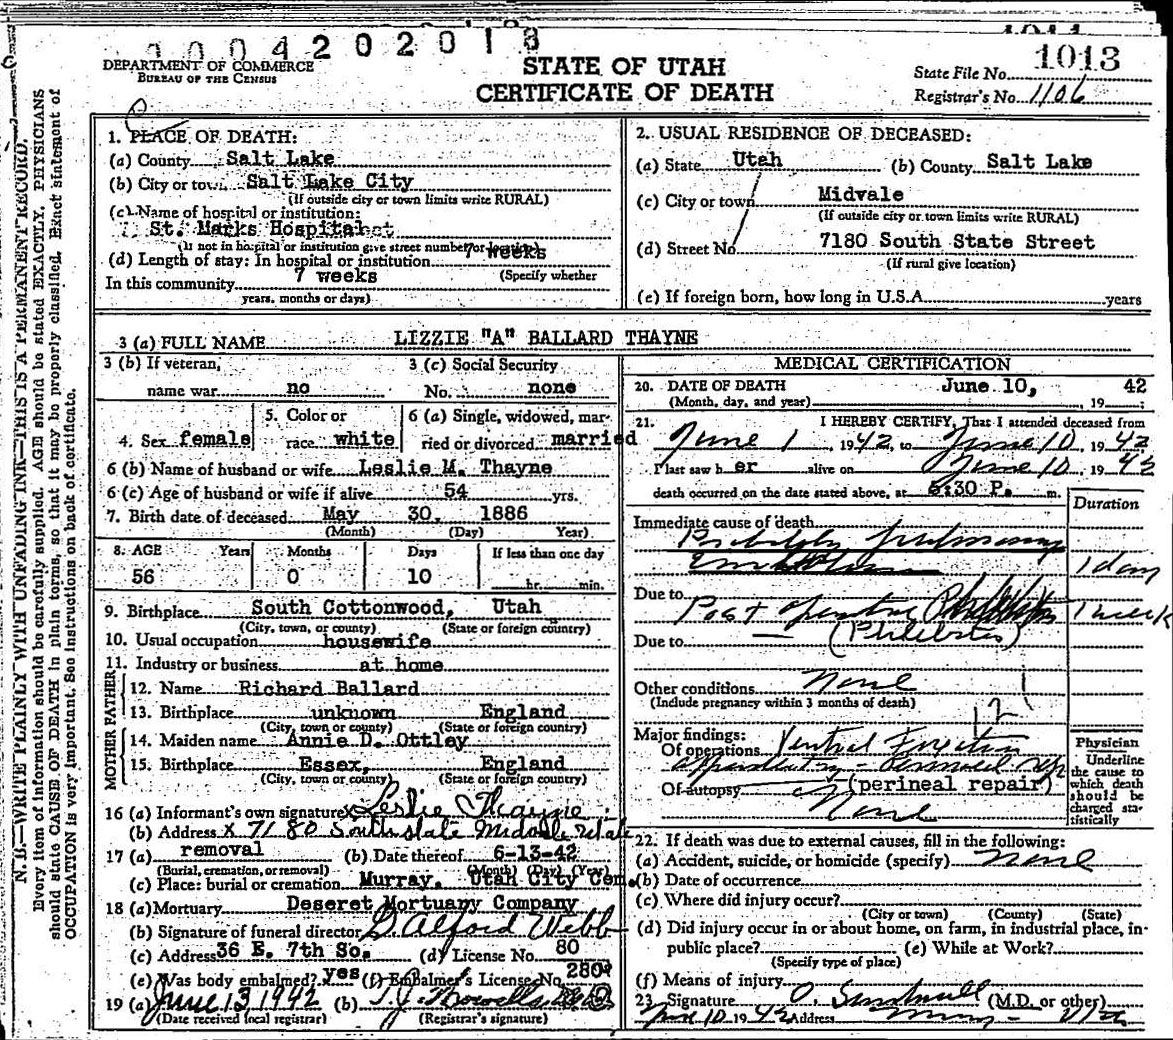 1011
0004202018
1013
DEPARTMENT OF COMMERCE
BUREAU OF THE CENSUS
STATE OF UTAH
CERTIFICATE OF DEATH
State File No.
Registrar's No. 1106
N. B.—WRITE PLAINLY WITH UNFADING INK—THIS IS A PERMANENT RECORD.
Every item of information should be carefully supplied. AGE should be stated EXACTLY. PHYSICIANS
should state CAUSE OF DEATH in plain terms, so that it may be properly classified. Exact statement of
OCCUPATION is very important. See instructions on back of certificate.
1. PLACE OF DEATH:
(a) County Salt Lake
(b) City or town Salt Lake City
(If outside city or town limits write RURAL)
(c) Name of hospital or institution:
St. Marks Hospital
(If not in hospital or institution give street number or location)
(d) Length of stay: In hospital or institution 7 weeks
(Specify whether
In this community 7 weeks
years, months or days)
2. USUAL RESIDENCE OF DECEASED:
(a) State Utah (b) County Salt Lake
(c) City or town Midvale
(If outside city or town limits write RURAL)
(d) Street No. 7180 South State Street
(If rural give location)
(e) If foreign born, how long in U.S.A. years
3 (a) FULL NAME LIZZIE "A" BALLARD THAYNE
3 (b) If veteran,
name war no
3 (c) Social Security
No. none
4. Sex female
5. Color or
race white
6 (a) Single, widowed, mar-
ried or divorced married
6 (b) Name of husband or wife Leslie M. Thayne
6 (c) Age of husband or wife if alive 54 yrs.
7. Birth date of deceased May 30, 1886
(Month) (Day) Year)
8. AGE Years Months Days If less than one day
56 0 10 hr. min.
9. Birthplace South Cottonwood, Utah
(City, town, or county) (State or foreign country)
10. Usual occupation housewife
11. Industry or business at home
FATHER
12. Name Richard Ballard
13. Birthplace unknown England
(City, town or county) (State or foreign country)
MOTHER
14. Maiden name Annie D. Ottley
15. Birthplace Essex, England
(City, town or county) (State or foreign country)
16 (a) Informant's own signature x Leslie Thayne
(b) Address x 7180 South State Midvale
17 (a) removal (b) Date thereof 6-13-42
(Burial, cremation, or removal) (Month) (Day) (Year)
(c) Place: burial or cremation Murray, Utah City Cem.
18 (a) Mortuary Deseret Mortuary Company
(b) Signature of funeral director D. Alford Webb
(c) Address 36 E. 7th So. (d) License No. 80
(e) Was body embalmed? yes (f) Embalmer's License No. 280
19 (a) June 13 1942 (b)
(Date received local registrar) (Registrar's signature)
MEDICAL CERTIFICATION
20. DATE OF DEATH June 10, 42
(Month, day, and year) 19
21. I HEREBY CERTIFY, That I attended deceased from
June 1 1942, to June 10, 1942
I last saw her alive on June 10, 1942
death occurred on the date stated above, at 5:30 P. m.
Duration
Immediate cause of death
Probably pulmonary
Embolism 1 day
Due to
Post operative 1 week
Due to (Phlebitis)
Other conditions None
(Include pregnancy within 3 months of death)
Major findings:
Of operations Ventral Fixation
(perineal repair)
Of autopsy None
Physician
Underline
the cause to
which death
should be
charged sta-
tistically
22. If death was due to external causes, fill in the following:
(a) Accident, suicide, or homicide (specify) None
(b) Date of occurrence
(c) Where did injury occur?
(City or town) (County) (State)
(d) Did injury occur in or about home, on farm, in industrial place, in-
public place? (e) While at Work?
(Specify type of place)
(f) Means of injury
23 Signature (M.D. or other)
June 10 1942 Address Murray - Utah